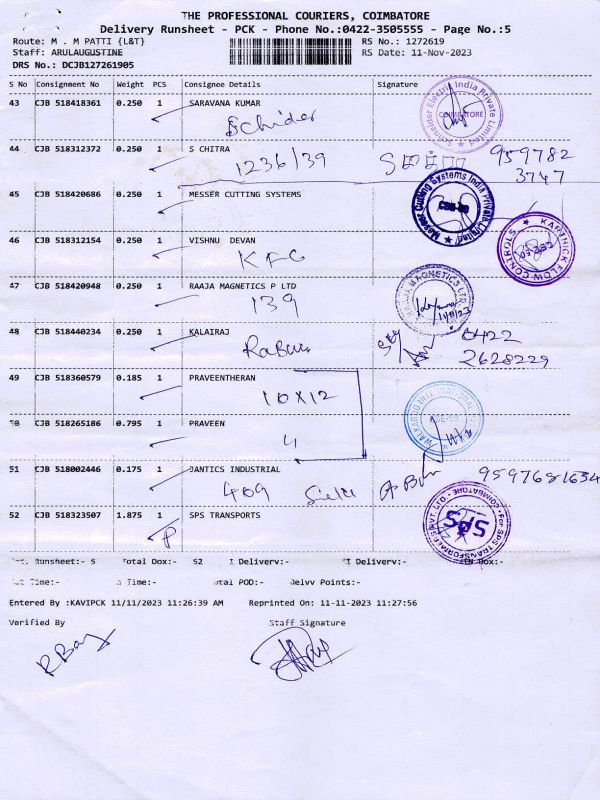 THE PROFESSIONAL COURIERS, COIMBATORE
Delivery Runsheet - PCK - Phone No.:0422-3505555 - Page No.:5
Route: M . M PATTI {L&T} RS No.: 1272619
Staff: ARULAUGUSTINE RS Date: 11-Nov-2023
DRS No.: DCJB127261905
S No Consignment No Weight PCS Consignee Details Signature
43 CJB 518418361 0.250 1 SARAVANA KUMAR
Schider
Schneider Electric India Private Limited
COIMBATORE
44 CJB 518312372 0.250 1 S CHITRA
1236/39 959782
3747
45 CJB 518420686 0.250 1 MESSER CUTTING SYSTEMS
Messer Cutting Systems India Private Limited
46 CJB 518312154 0.250 1 VISHNU DEVAN
KFC
KARTHICK FLOW CONTROLS
47 CJB 518420948 0.250 1 RAAJA MAGNETICS P LTD
139
RAAJA MAGNETICS LTD
48 CJB 518440234 0.250 1 KALAIRAJ
0422
2628229
49 CJB 518360579 0.185 1 PRAVEENTHERAN
10X12
50 CJB 518265186 0.795 1 PRAVEEN
4
51 CJB 518002446 0.175 1 JANTICS INDUSTRIAL
409 9597681634
52 CJB 518323507 1.875 1 SPS TRANSPORTS
For SPS TRANSFORMERS PVT. LTD. COIMBATORE
SPS
Runsheet:- 5 Total Dox:- 52 Delivery:- Delivery:- Dox:-
Time:- Time:- POD:- Delvy Points:-
Entered By :KAVIPCK 11/11/2023 11:26:39 AM Reprinted On: 11-11-2023 11:27:56
Verified By Staff Signature